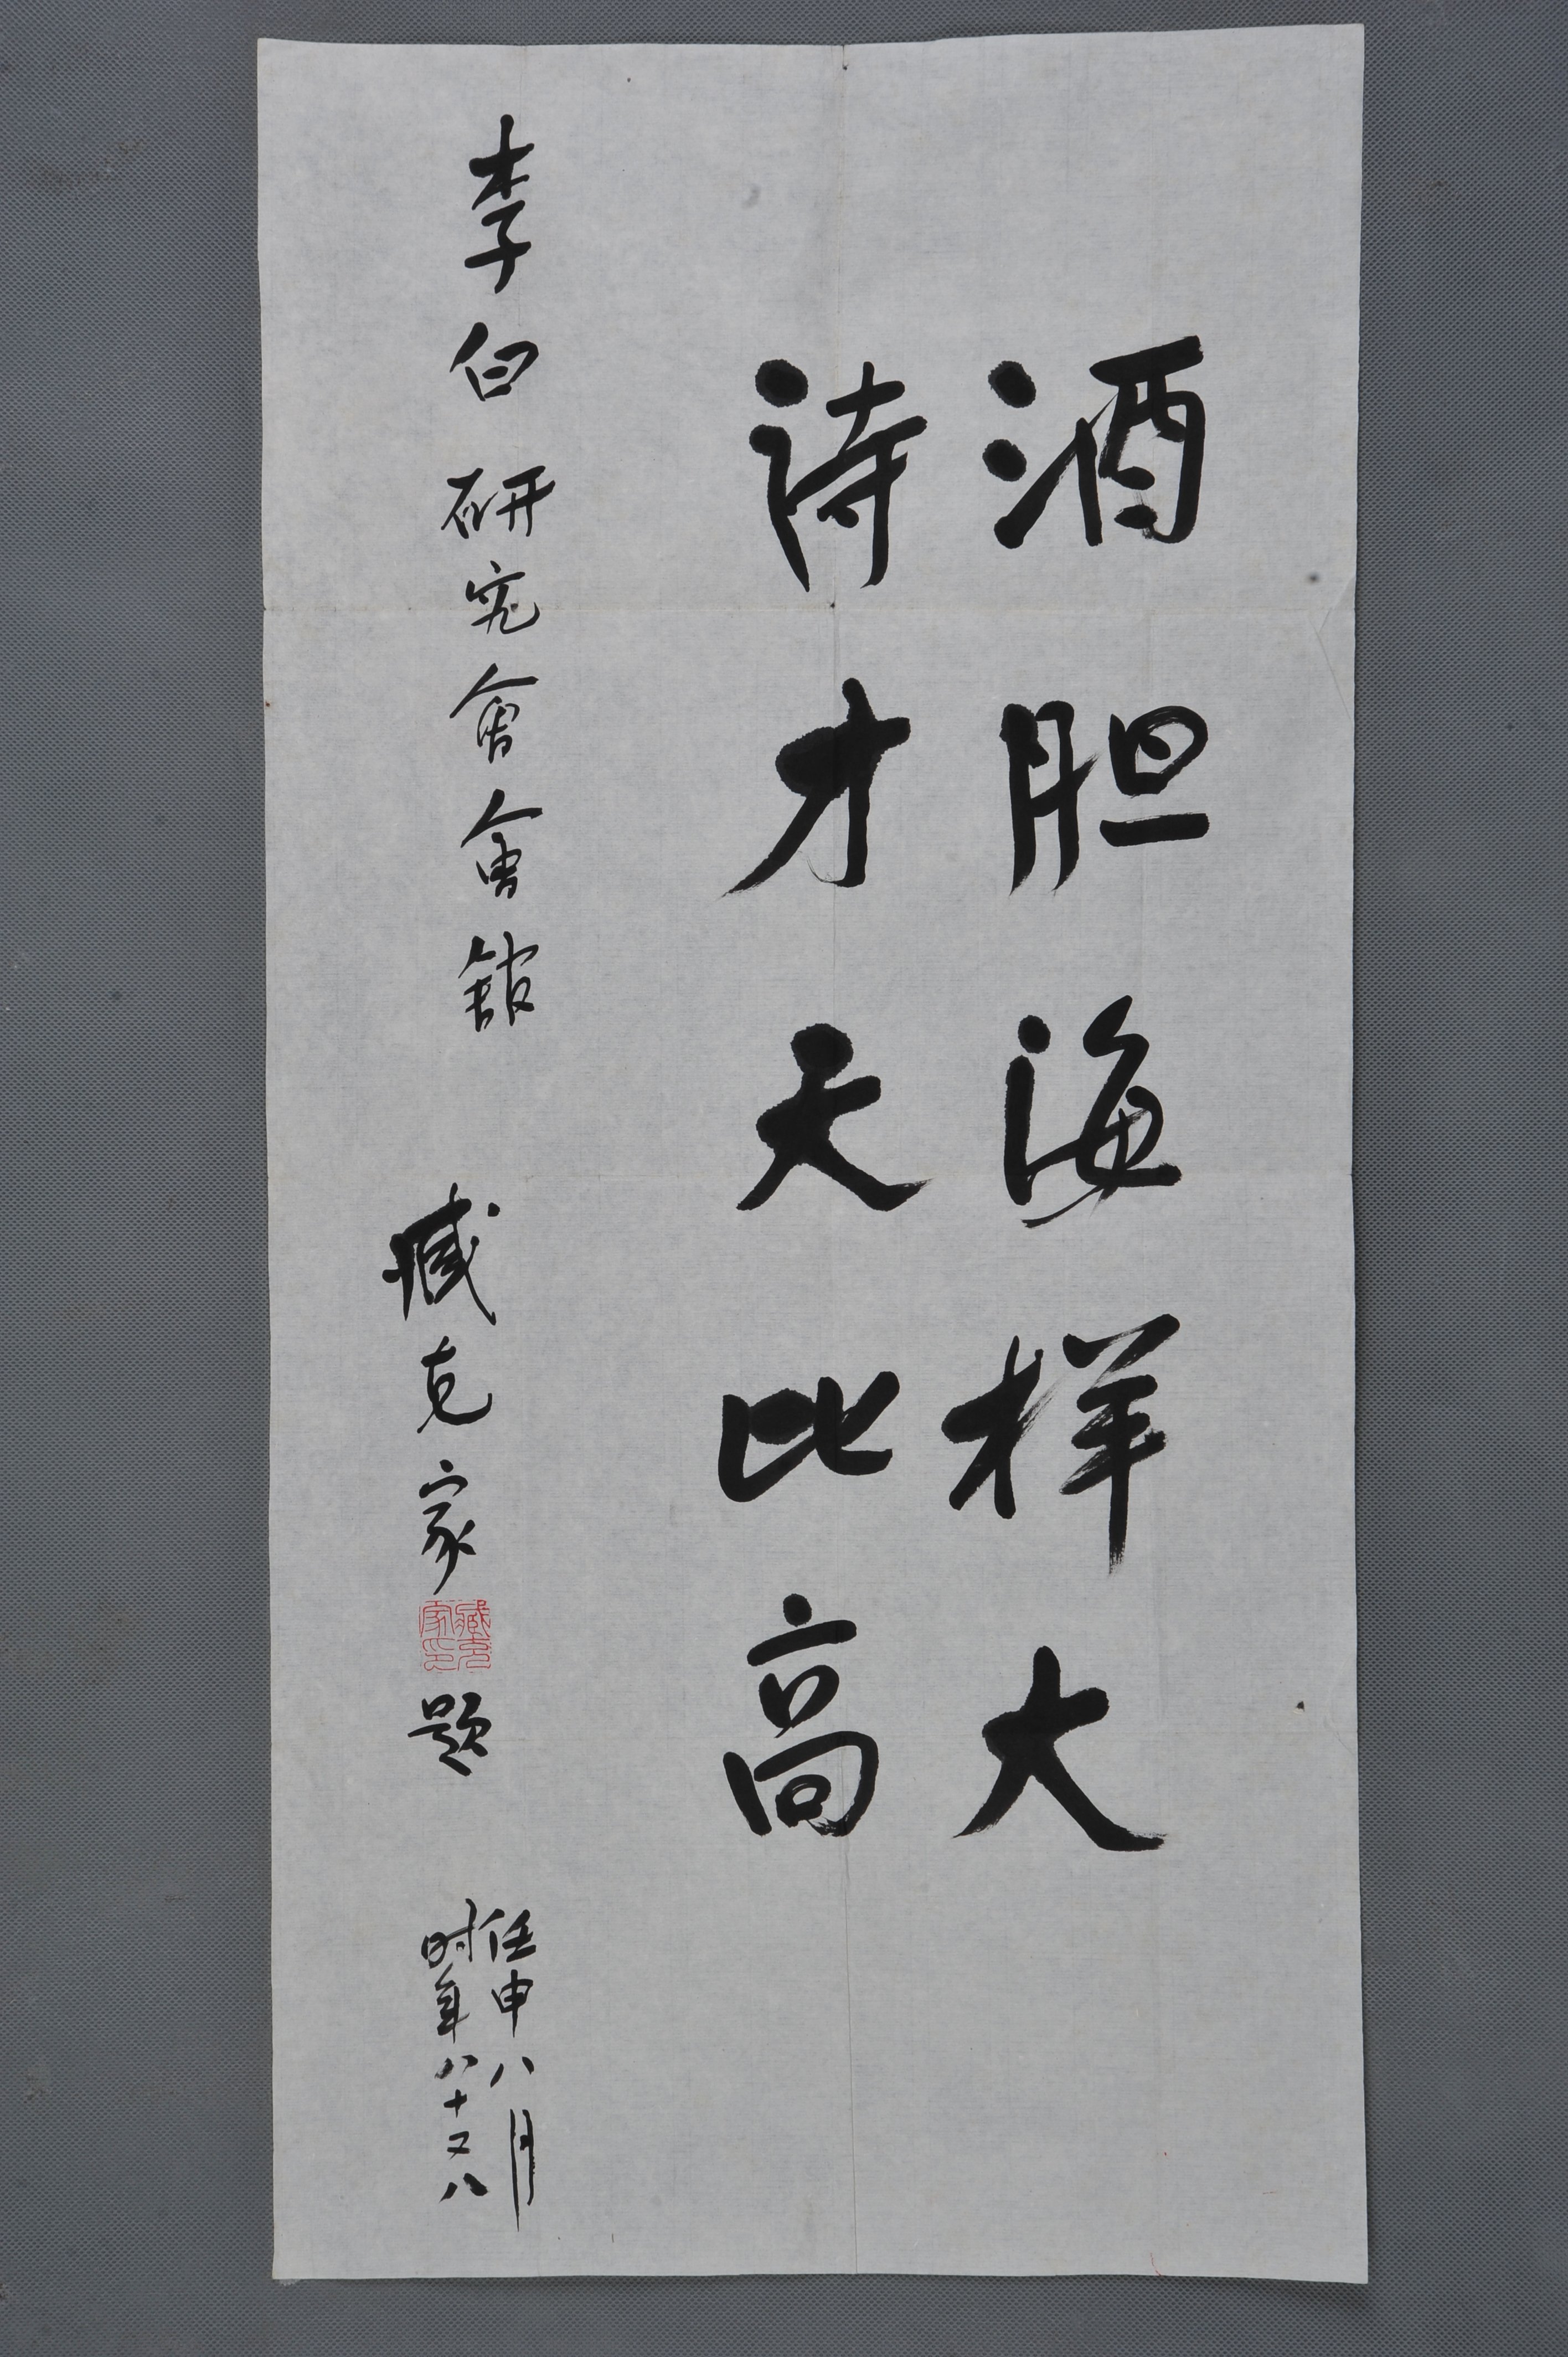 酒胆海样大
诗才天比高
李白研究會會舘
臧克家
臧克家印
题
任申八月
时年八十又八